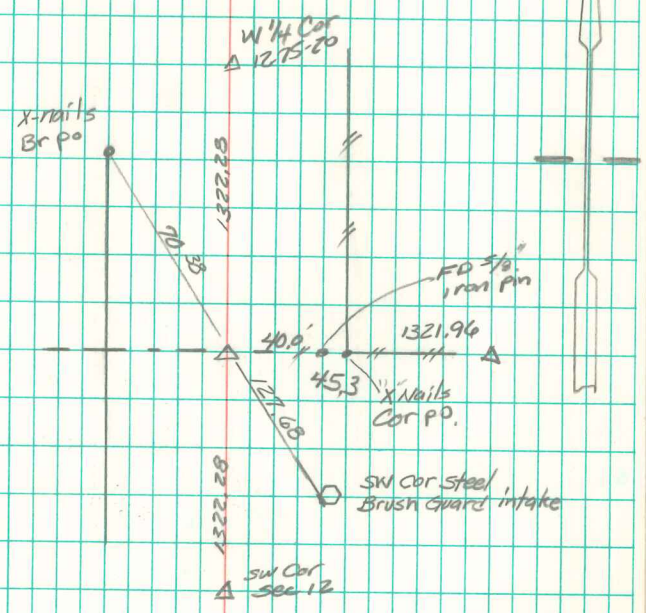 W 1/4 Cor
1275-70
X-nails
Br po
1322.28
70.38
FD 5/8"
iron pin
40.0'
1321.96
45.3
"X" Nails
Cor po.
127.68
SW Cor Steel
Brush Guard intake
1322.28
SW Cor
Sec 12